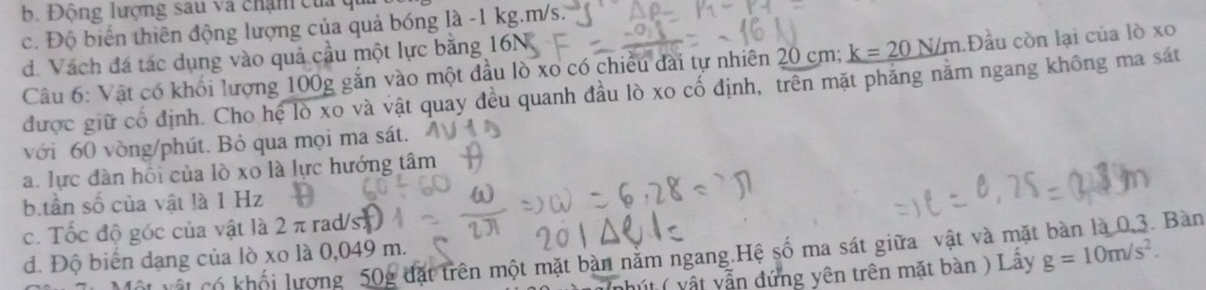 b. Động lượng sau va chạm của
c. Độ biến thiên động lượng của quả bóng là -1 kg.m/s. S ΔP = P₁ - P₁ =
d. Vách đá tác dụng vào quả cầu một lực bằng 16N S F = = -16N
Câu 6: Vật có khối lượng 100g gắn vào một đầu lò xo có chiều dài tự nhiên 20 cm; k = 20 N/m.Đầu còn lại của lò xo
được giữ cố định. Cho hệ lò xo và vật quay đều quanh đầu lò xo cố định, trên mặt phẳng nằm ngang không ma sát
với 60 vòng/phút. Bỏ qua mọi ma sát.
a. lực đàn hồi của lò xo là lực hướng tâm Đ
b.tần số của vật là 1 Hz Đ 60 : 60
c. Tốc độ góc của vật là 2 π rad/s Đ 1 = ω/2π => ω = 6.28 = 2π => l = 0,25 =
d. Độ biến dạng của lò xo là 0,049 m. S 20 | Δl | =
có khối lượng 50g đặt trên một mặt bàn nằm ngang.Hệ số ma sát giữa vật và mặt bàn là 0,3. Bàn
( vật vẫn đứng yên trên mặt bàn ) Lấy g = 10m/s².